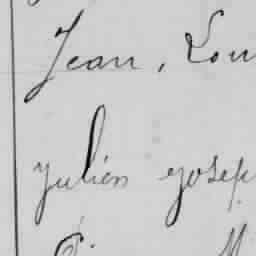 Jean, Lou
Julien Josep